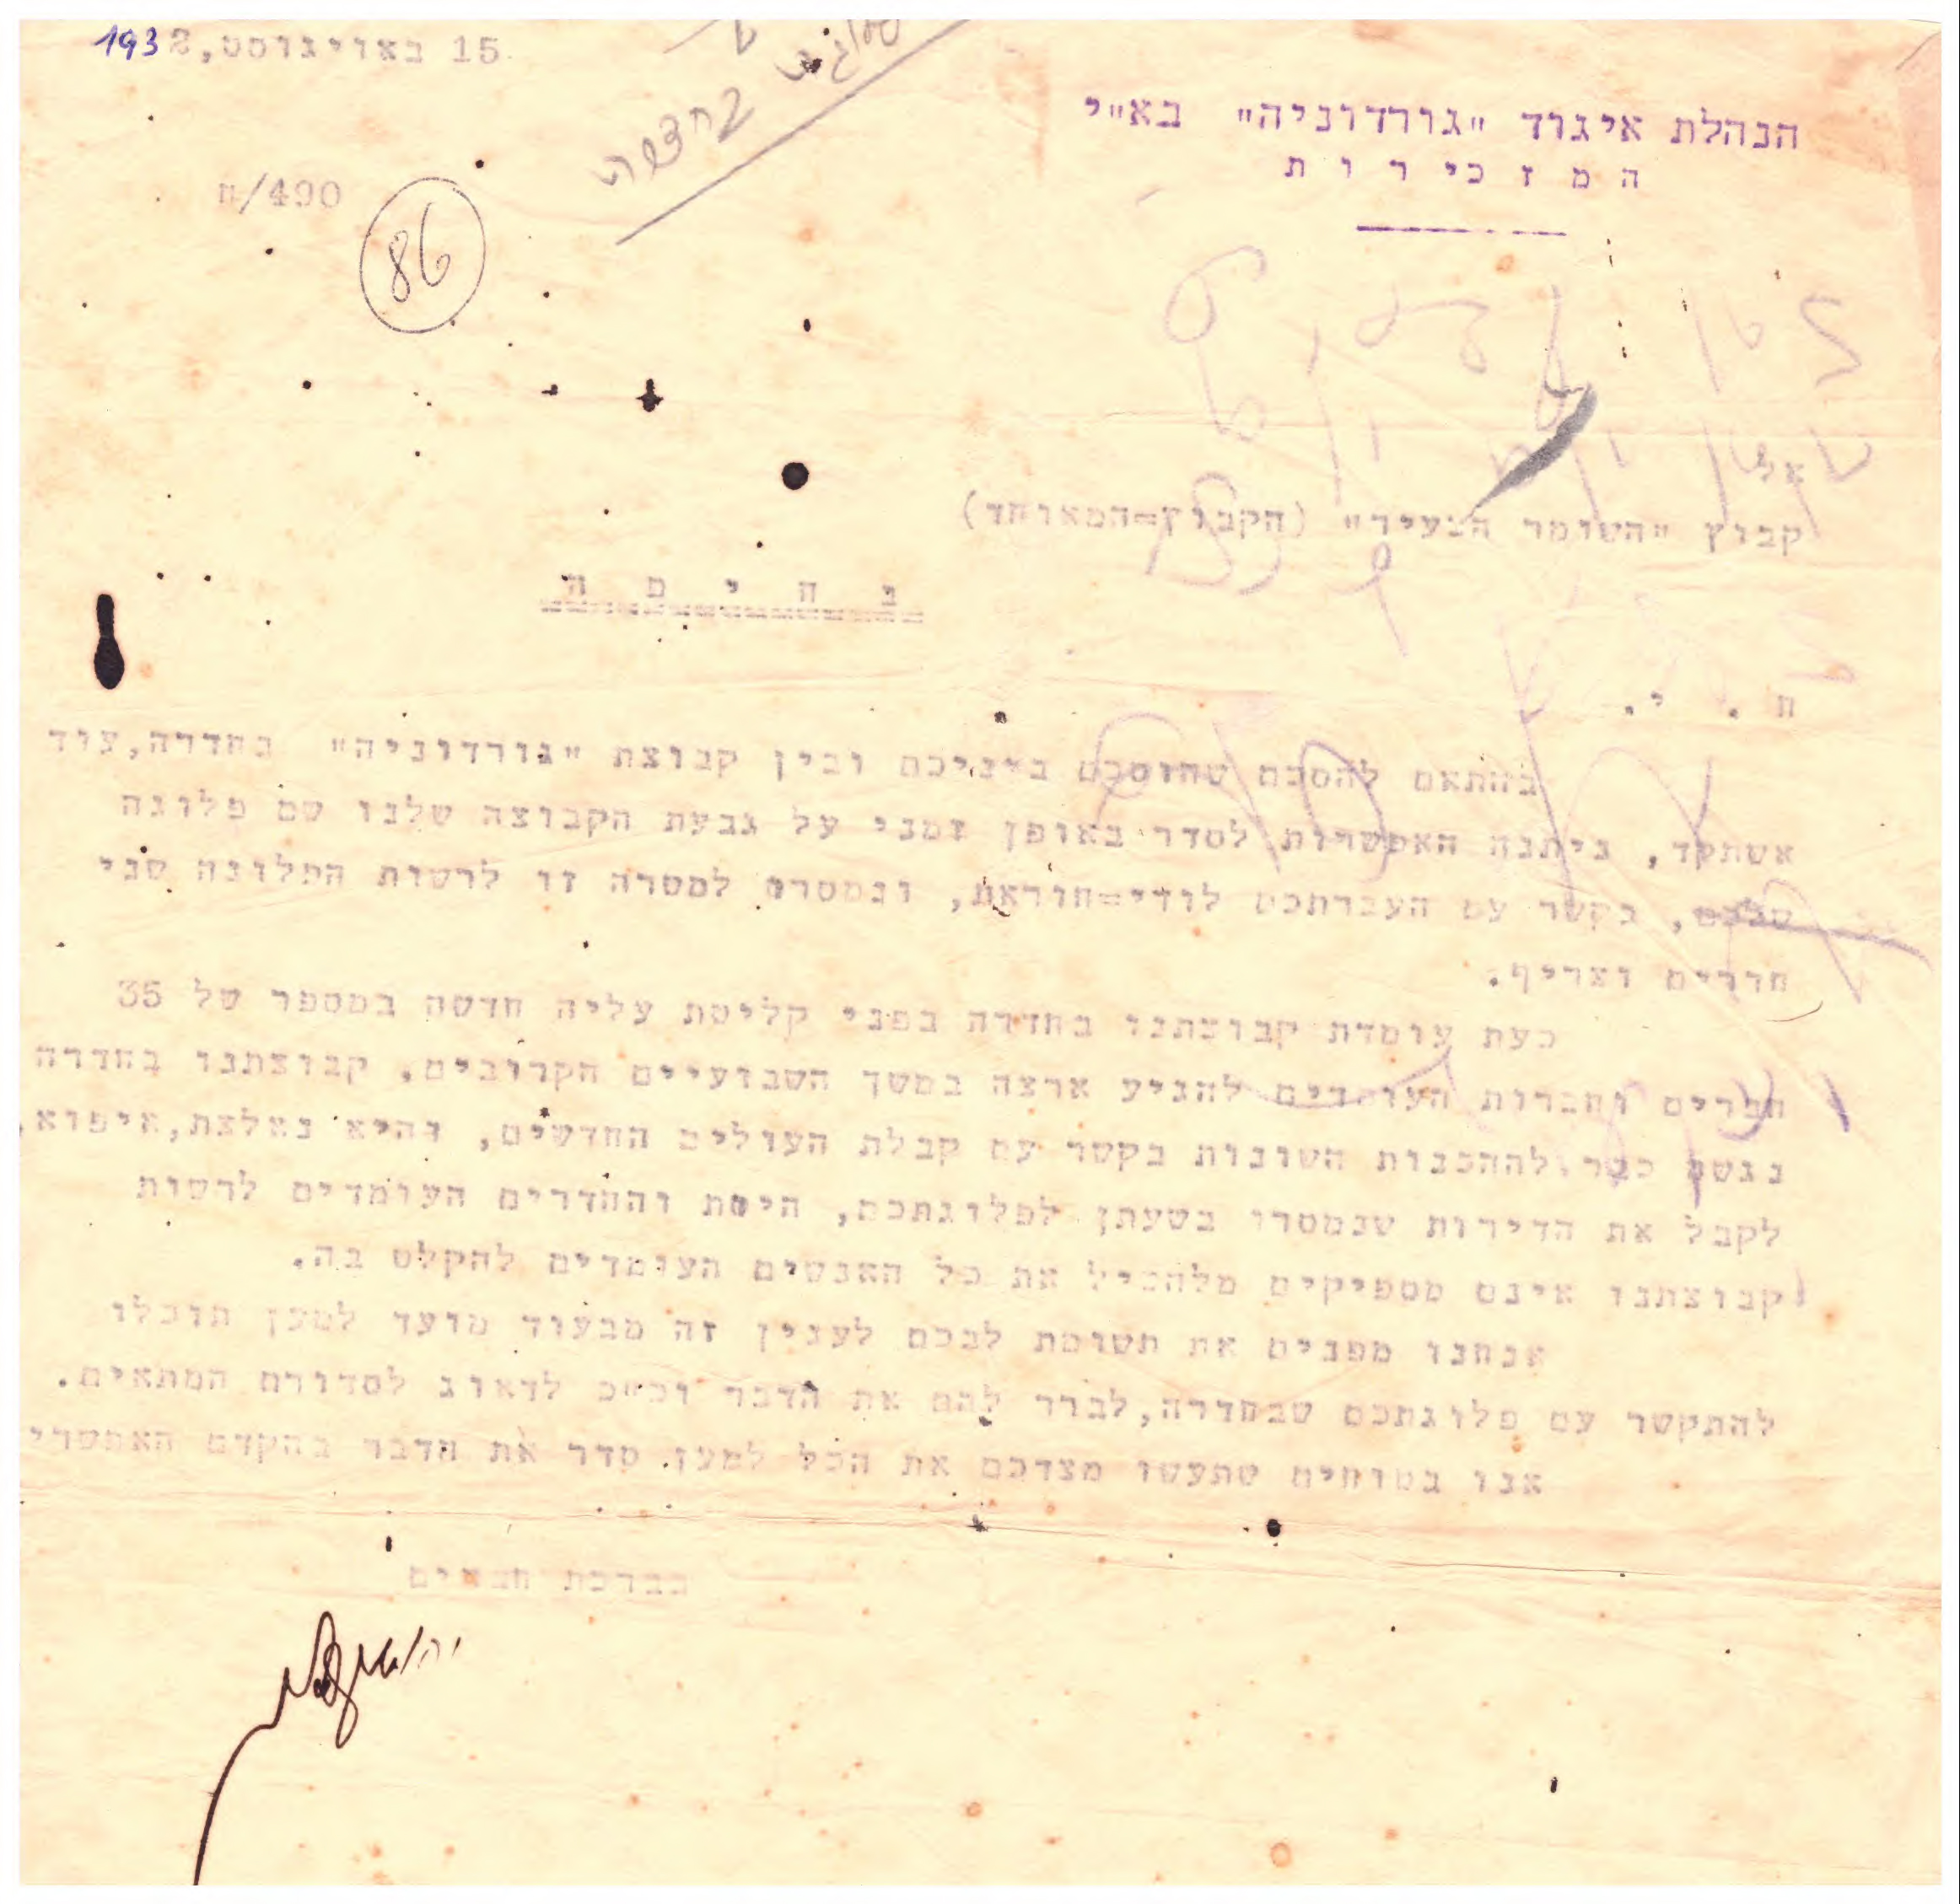 15 באויגוסט, 1932
הנהלת איגוד "גורדוניה" בא"י
ה מ ז כ י ר ו ת
בחדרה
490/ח
86
אל
קבוץ "השומר הצעיר" (הקבוץ=המאוחד)
נ ה י ס ה
ח. י.
בהתאם להסכם שהוסכם ביניכם ובין קבוצת "גורדוניה" בחדרה, עוד
אשתקד, ניתנה האפשרות לסדר באופן זמני על גבעת הקבוצה שלנו שם פלוגה
שלכם, בקשר עם העברתכם לודי=חוראת, ונמסרו למטרה זו לרשות הפלוגה שני
חדרים וצריף.
כעת עומדת קבוצתנו בחדרה בפני קליטת עליה חדשה במספר של 35
חברים וחברות העומדים להגיע ארצה במשך השבועיים הקרובים. קבוצתנו בחדרה
נגשה כבר להכנות השונות בקשר עם קבלת העולים החדשים, והיא נאלצת, איפוא,
לקבל את הדירות שנמסרו בשעתן לפלוגתכם, היות והחדרים העומדים לרשות
קבוצתנו אינם מספיקים מלהכיל את כל האנשים העומדים להקלט בה.
אנחנו מפנים את תשומת לבכם לענין זה מבעוד מועד למען תוכלו
להתקשר עם פלוגתכם שבחדרה, לברר להם את הדבר וכ"כ לדאוג לסדורם המתאים.
אנו בטוחים שתעשו מצדכם את הכל למען סדר את הדבר בהקדם האפשרי
בברכת חברים